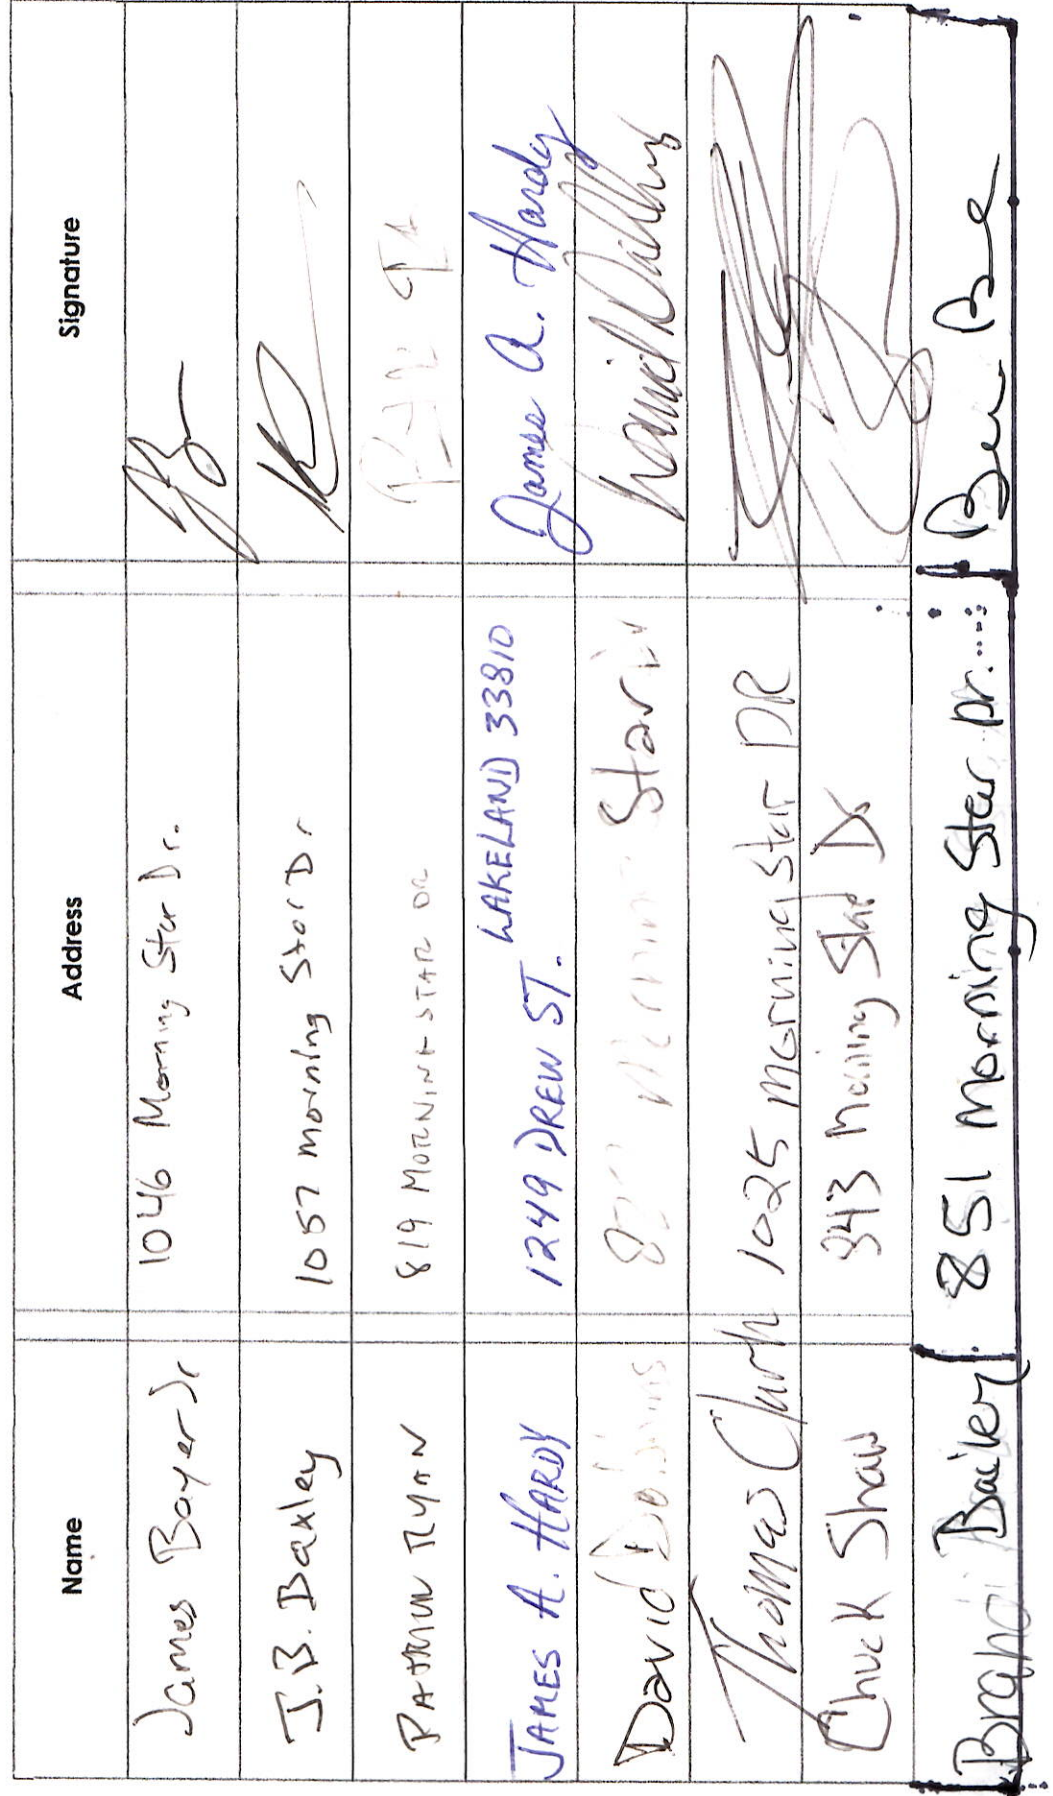 Name Address Signature
James Bayer Jr 1046 Morning Star Dr.
J.B. Baxley 1057 morning Star Dr
PATRICK RYAN 819 MORNING STAR DR
JAMES A. HARDY 1249 DREW ST. LAKELAND 33810 James A. Hardy
David Star
Thomas Clark 1025 morning Star DR
Chuck Shaw 843 Morning Star Dr
Brandi Bailey 851 Morning Star Dr.